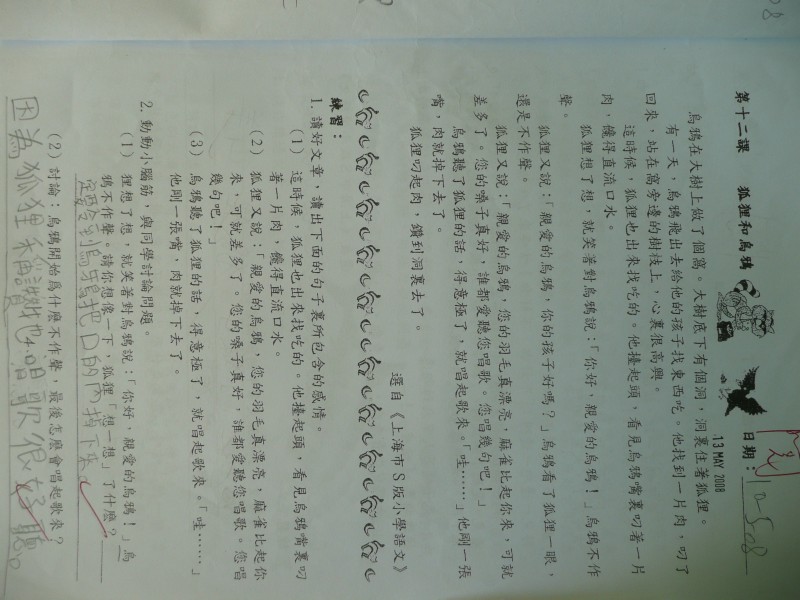 第十二課　狐狸和烏鴉
日期：
13 MAY 2008
烏鴉在大樹上做了個窩。大樹底下有個洞，洞裏住著狐狸。
有一天，烏鴉飛出去給他的孩子找東西吃。他找到一片肉，叼了
回來，站在窩旁邊的樹枝上，心裏很高興。
這時候，狐狸也出來找吃的。他擡起頭，看見烏鴉嘴裏叼著一片
肉，饞得直流口水。
狐狸想了想，就笑著對烏鴉說：「你好，親愛的烏鴉！」烏鴉不作
聲。
狐狸又說：「親愛的烏鴉，你的孩子好嗎？」烏鴉看了狐狸一眼，
還是不作聲。
狐狸又說：「親愛的烏鴉，您的羽毛真漂亮，麻雀比起你來，可就
差多了。您的嗓子真好，誰都愛聽您唱歌。您唱幾句吧！」
烏鴉聽了狐狸的話，得意極了，就唱起歌來。「哇……」他剛一張
嘴，肉就掉下去了。
狐狸叼起肉，鑽到洞裏去了。
選自《上海市S版小學語文》
練習：
1. 讀好文章，讀出下面的句子裏所包含的感情。
（1） 這時候，狐狸也出來找吃的。他擡起頭，看見烏鴉嘴裏叼
著一片肉，饞得直流口水。
（2） 狐狸又說：「親愛的烏鴉，您的羽毛真漂亮，麻雀比起你
來，可就差多了。您的嗓子真好，誰都愛聽您唱歌。您唱
幾句吧！」
（3） 烏鴉聽了狐狸的話，得意極了，就唱起歌來。「哇……」
他剛一張嘴，肉就掉下去了。
2. 動動小腦筋，與同學討論問題。
（1） 狸想了想，就笑著對烏鴉說：「你好，親愛的烏鴉！」烏
鴉不作聲。請你想像一下，狐狸「想一想」了什麼？
定要令到烏鴉把口的肉掉下來
（2） 討論：烏鴉開始爲什麼不作聲，最後怎麼會唱起歌來？
因為狐狸稱讚他唱歌很好聽。